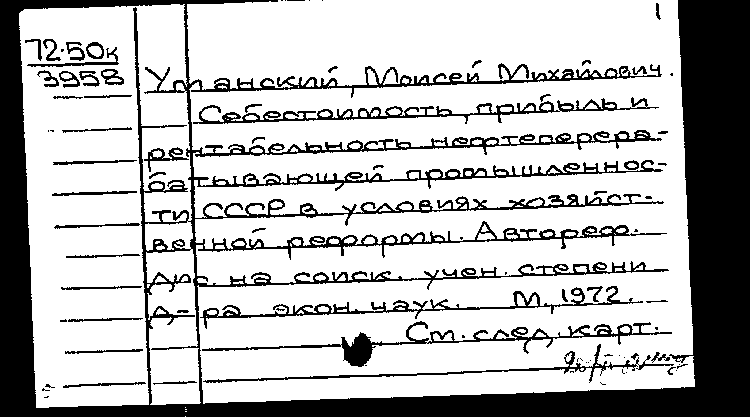 1
72-50к
3958
Уманский, Моисей Михайлович.
Себестоимость, прибыль и
рентабельность нефтеперера-
батывающей промышленнос-
ти СССР в условиях хозяйст-
венной реформы. Автореф.
дис. на соиск. учен. степени
д-ра экон. наук. М., 1972.
См. след. карт.